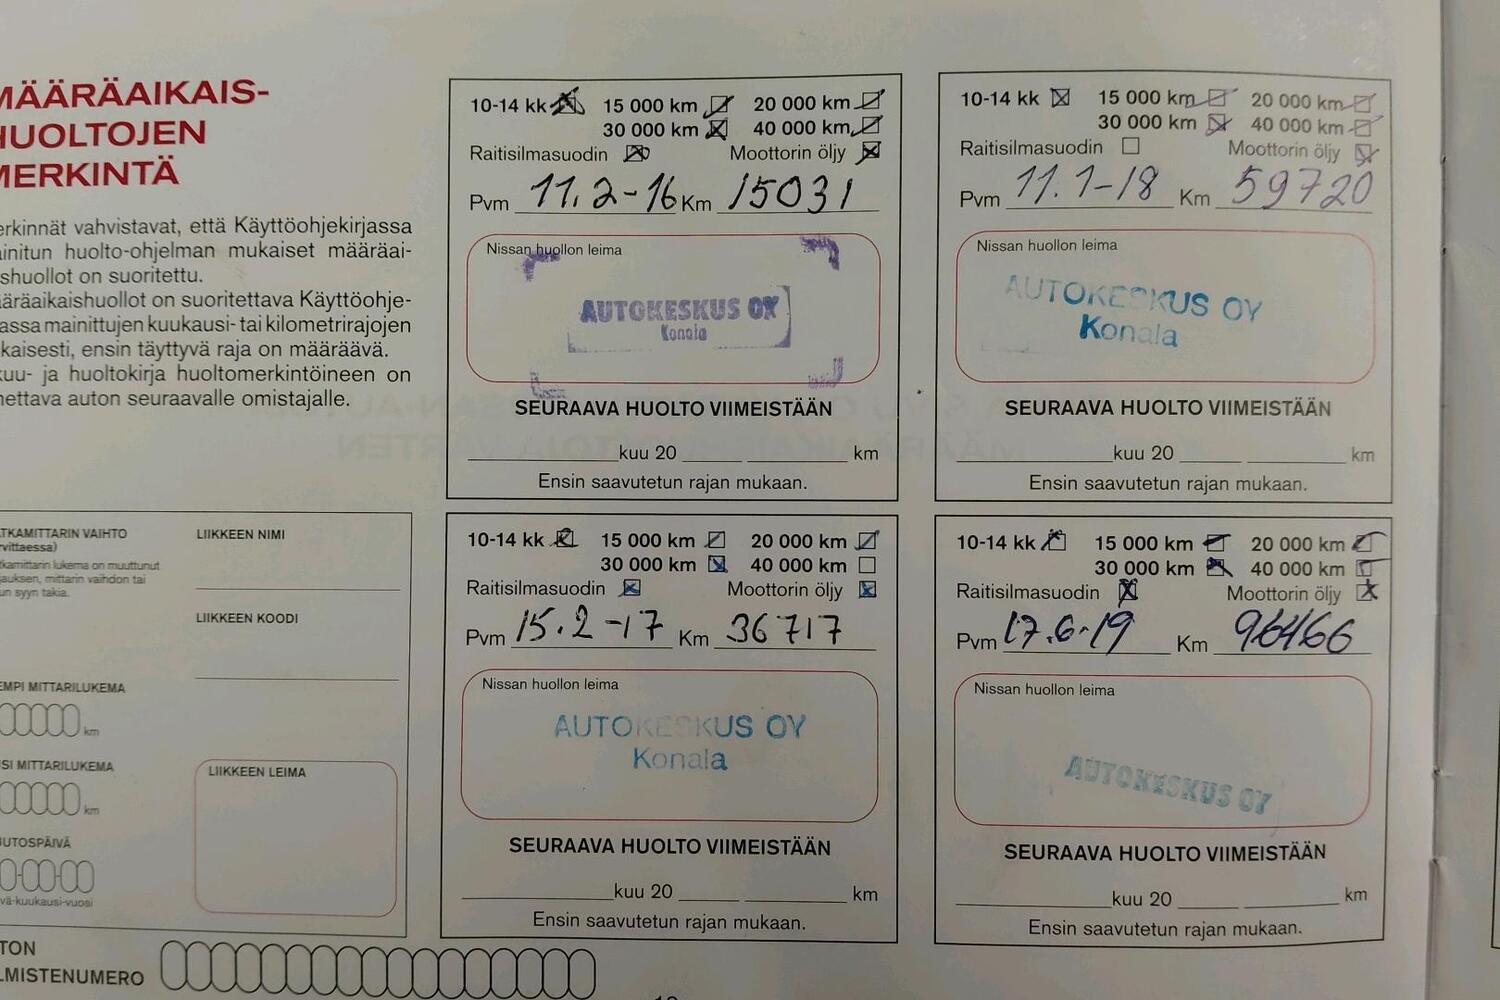 MÄÄRÄAIKAIS-
HUOLTOJEN
MERKINTÄ
erkinnät vahvistavat, että Käyttöohjekirjassa
ainitun huolto-ohjelman mukaiset määräai-
shuollot on suoritettu.
ääräaikaishuollot on suoritettava Käyttöohje-
assa mainittujen kuukausi- tai kilometrirajojen
kaisesti, ensin täyttyvä raja on määräävä.
kuu- ja huoltokirja huoltomerkintöineen on
nettava auton seuraavalle omistajalle.
TKAMITTARIN VAIHTO
rvittaessa)
tkamittarin lukema on muuttunut
jauksen, mittarin vaihdon tai
un syyn takia.
LIIKKEEN NIMI
LIIKKEEN KOODI
EMPI MITTARILUKEMA
km
SI MITTARILUKEMA
km
UTOSPÄIVÄ
vä-kuukausi-vuosi
LIIKKEEN LEIMA
TON
LMISTENUMERO
10-14 kk 15 000 km 20 000 km
30 000 km 40 000 km
Raitisilmasuodin Moottorin öljy
Pvm 11.2-16 Km 15031
Nissan huollon leima
AUTOKESKUS OY
Konala
SEURAAVA HUOLTO VIIMEISTÄÄN
kuu 20 km
Ensin saavutetun rajan mukaan.
10-14 kk 15 000 km 20 000 km
30 000 km 40 000 km
Raitisilmasuodin Moottorin öljy
Pvm 11.1-18 Km 59720
Nissan huollon leima
AUTOKESKUS OY
Konala
SEURAAVA HUOLTO VIIMEISTÄÄN
kuu 20 km
Ensin saavutetun rajan mukaan.
10-14 kk 15 000 km 20 000 km
30 000 km 40 000 km
Raitisilmasuodin Moottorin öljy
Pvm 15.2-17 Km 36717
Nissan huollon leima
AUTOKESKUS OY
Konala
SEURAAVA HUOLTO VIIMEISTÄÄN
kuu 20 km
Ensin saavutetun rajan mukaan.
10-14 kk 15 000 km 20 000 km
30 000 km 40 000 km
Raitisilmasuodin Moottorin öljy
Pvm 17.6-19 Km 96466
Nissan huollon leima
AUTOKESKUS OY
SEURAAVA HUOLTO VIIMEISTÄÄN
kuu 20 km
Ensin saavutetun rajan mukaan.